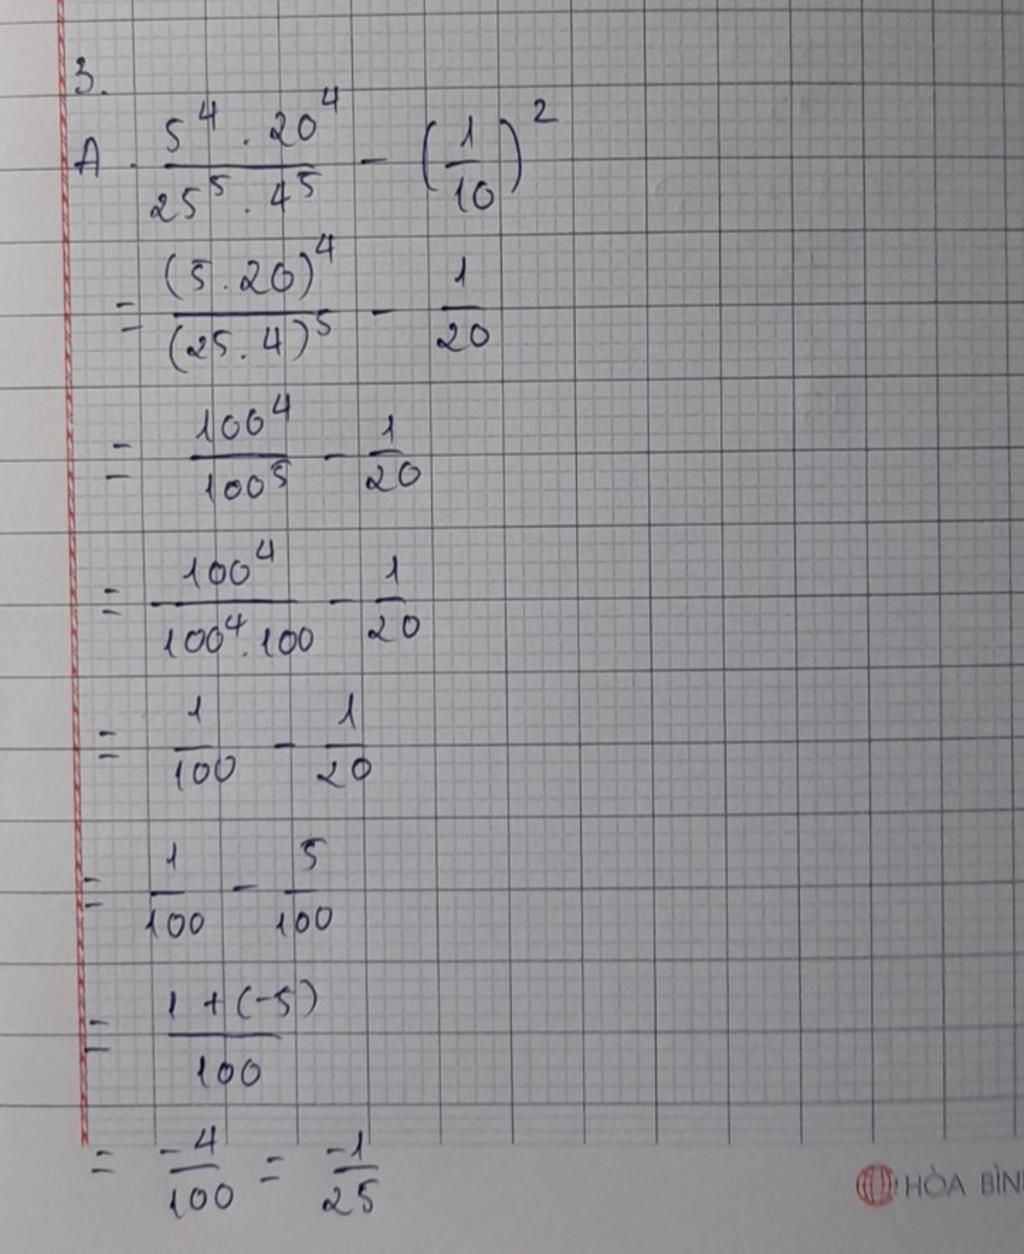 3.
A. \frac{5^4 . 20^4}{25^5 . 4^5} - (\frac{1}{10})^2
= \frac{(5.20)^4}{(25.4)^5} - \frac{1}{20}
= \frac{100^4}{100^5} - \frac{1}{20}
= \frac{100^4}{100^4.100} - \frac{1}{20}
= \frac{1}{100} - \frac{1}{20}
= \frac{1}{100} - \frac{5}{100}
= \frac{1+(-5)}{100}
= \frac{-4}{100} = \frac{-1}{25}
HÒA